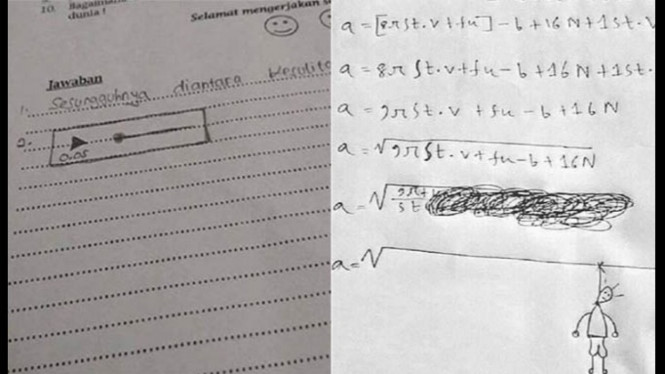 10. Bagaimana
dunia !
Selamat mengerjakan s
Jawaban
1. Sesungguhnya diantara kesulita
2.
0.05
a = [8πst.v + fu] - b + 16N + 1st.v
a = 8πSt.v + fu - b + 16N + 1st.
a = 9πst.v + fu - b + 16N
a = √9πSt.v + fu - b + 16N
a = √
a = √